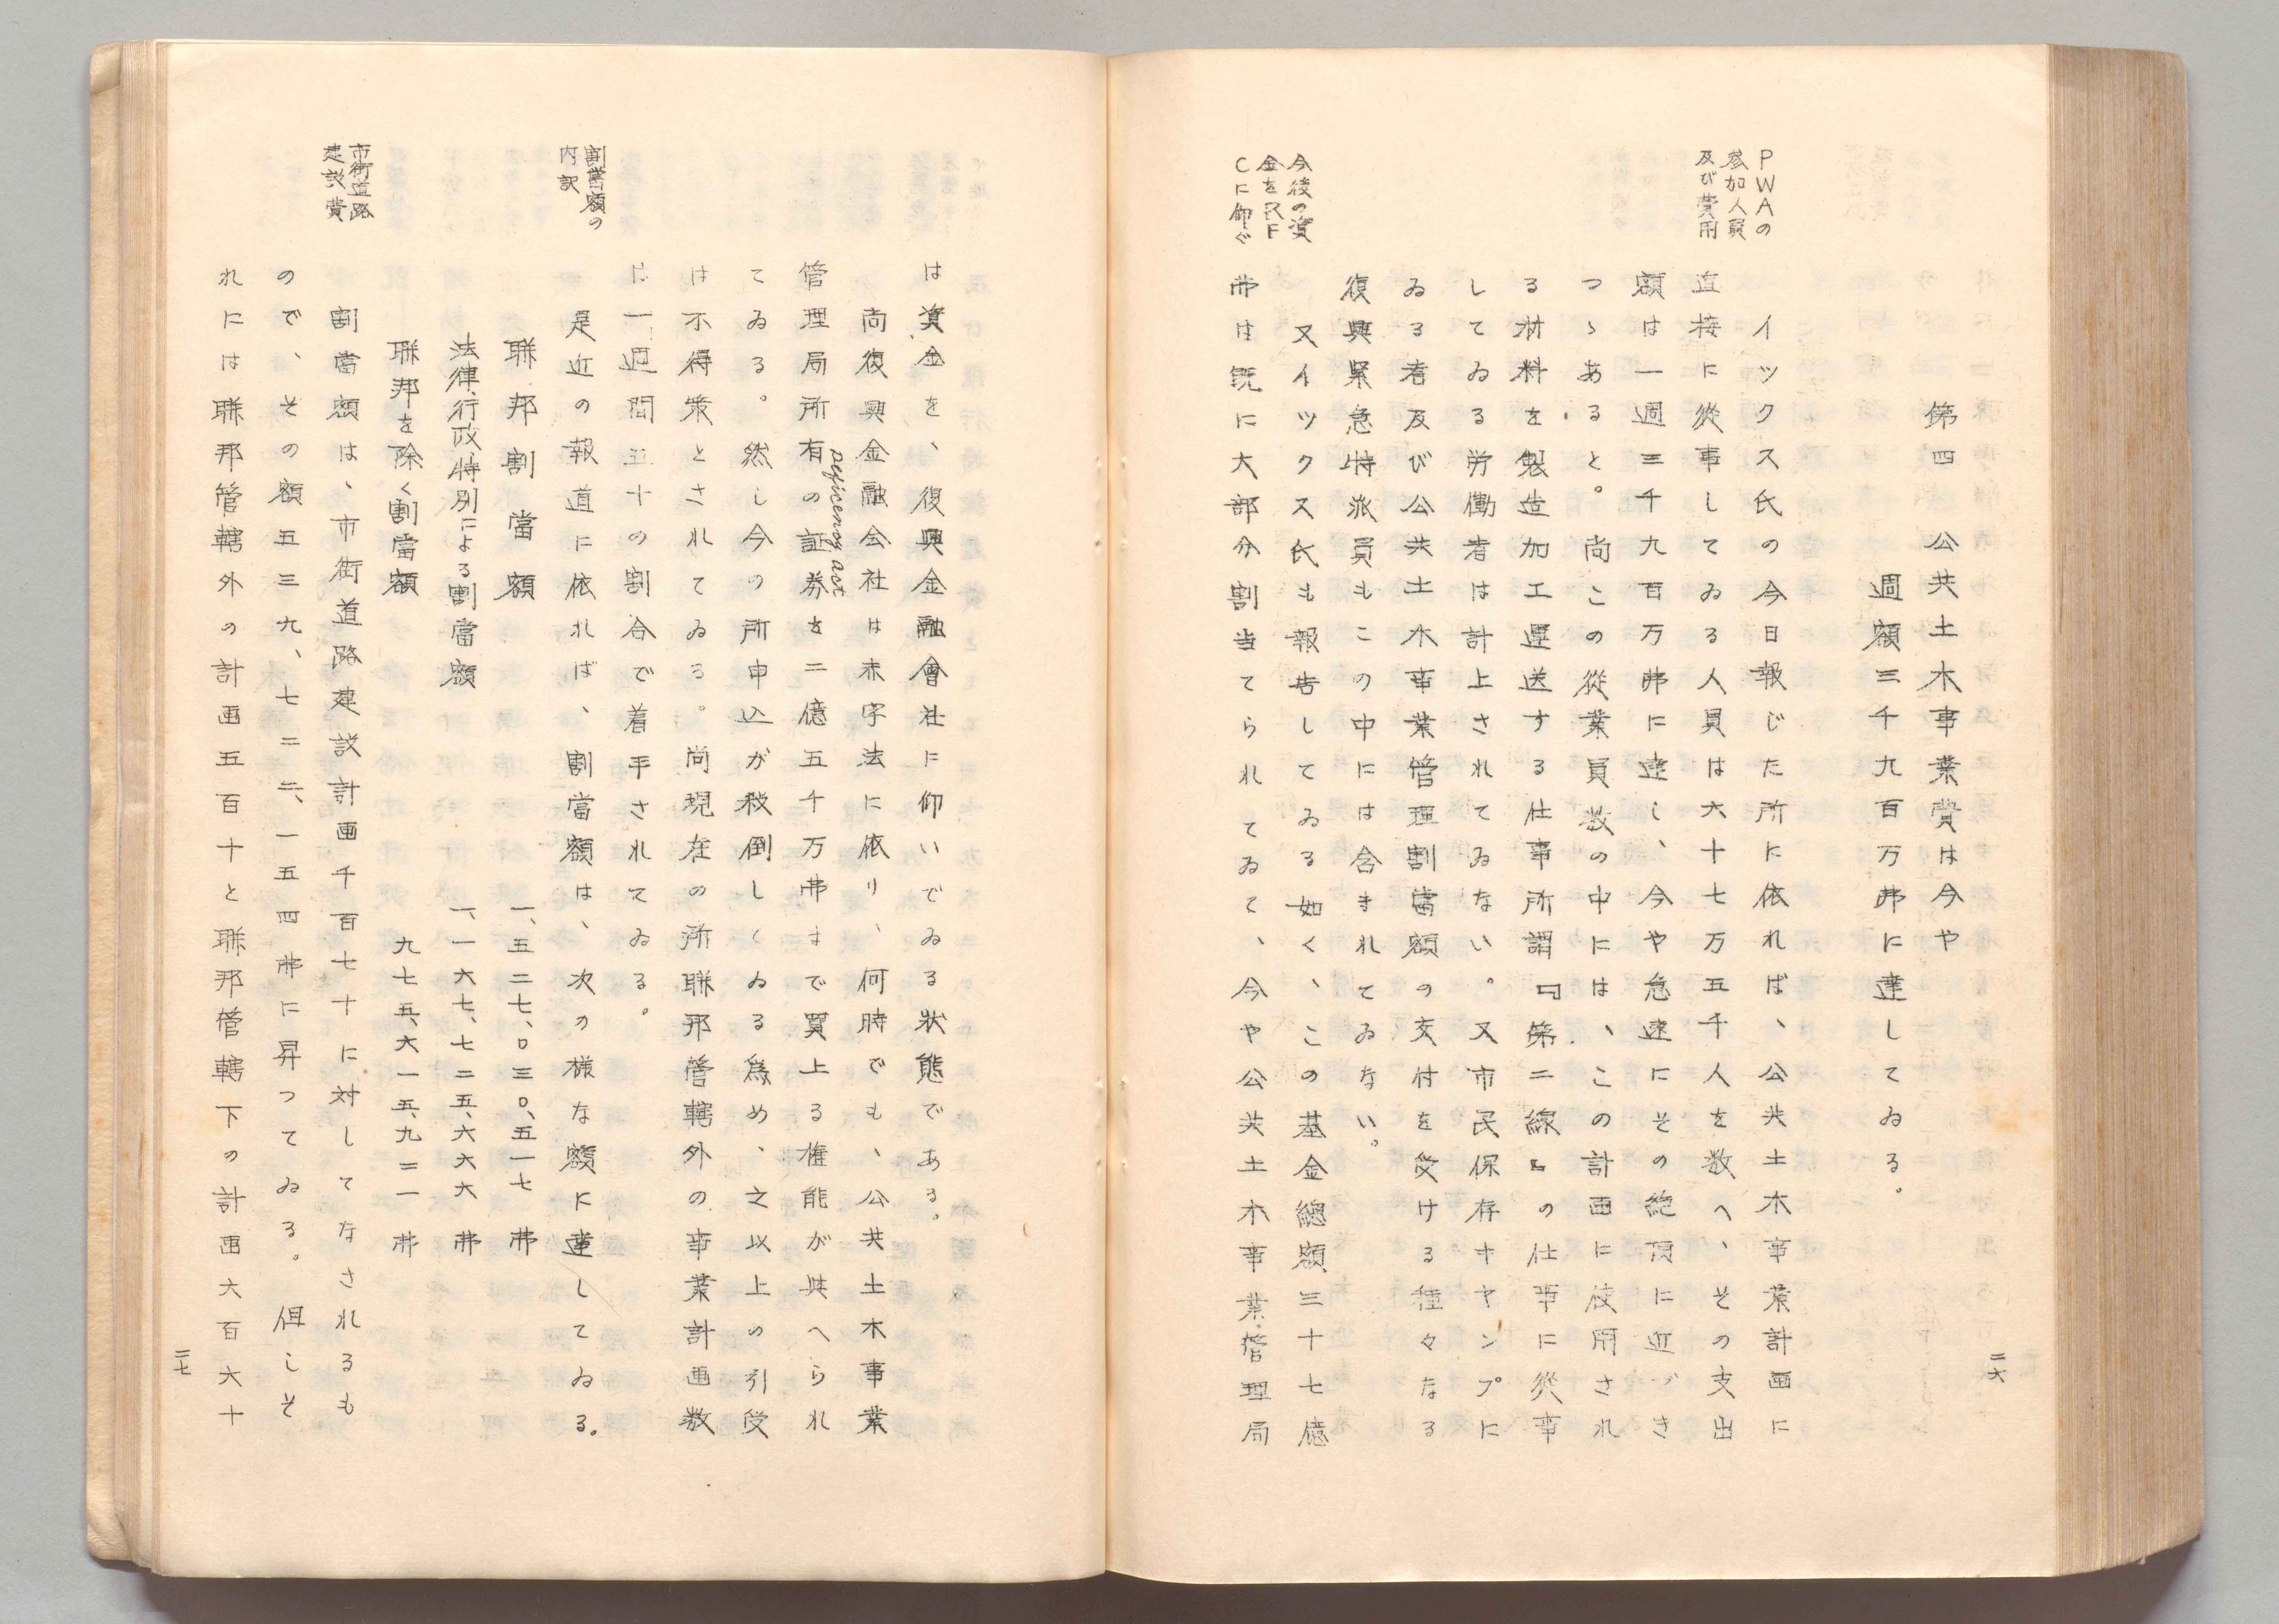 第四　公共土木事業費は今や
週額三千九百万弗に達してゐる。
PWAの
参加人員
及び費用
イックス氏の今日報じた所に依れば、公共土木事業計画に
直接に從事してゐる人員は六十七万五千人を数へ、その支出
額は一週三千九百万弗に達し、今や急速にその絶頂に近づき
つゝあると。尚この從業員数の中には、この計画に使用され
る材料を製造加工運送する仕事所謂『第二線』の仕事に從事
してゐる労働者は計上されてゐない。又市民保存キヤンプに
ゐる者及び公共土木事業管理割當額の交付を受ける種々なる
復興緊急特派員もこの中には含まれてゐない。
今後の資
金をRF
Cに仰ぐ
又イックス氏も報告してゐる如く、この基金總額三十七億
弗は既に大部分割当てられてゐて、今や公共土木事業管理局
二六
は資金を、復興金融會社に仰いでゐる状態である。
尚復興金融会社は赤字法に依り、何時でも、公共土木事業
deficiency act
管理局所有の証券を二億五千万弗まで買上る権能が與へられ
てゐる。然し今の所申込が殺倒しくゐる爲め、之以上の引受
は不得策とされてゐる。尚現在の所聯邦管轄外の事業計画数
は一週間五十の割合で着手されてゐる。
割當額の
内訳
是近の報道に依れば、割當額は、次の様な額に達してゐる。
聯邦割當額　一、五二七、〇三〇、五一七弗
法律、行政、特別による割當額　一、一六七、七二五、六六六弗
聯邦を除く割當額　九七五、六一五、九二一弗
市街道路
建設費
割當額は、市街道路建設計画千百七十に対してなされるも
ので、その額五三九、七二二、一五四弗に昇つてゐる。但しそ
れには聯邦管轄外の計画五百十と聯邦管轄下の計画六百六十
二七